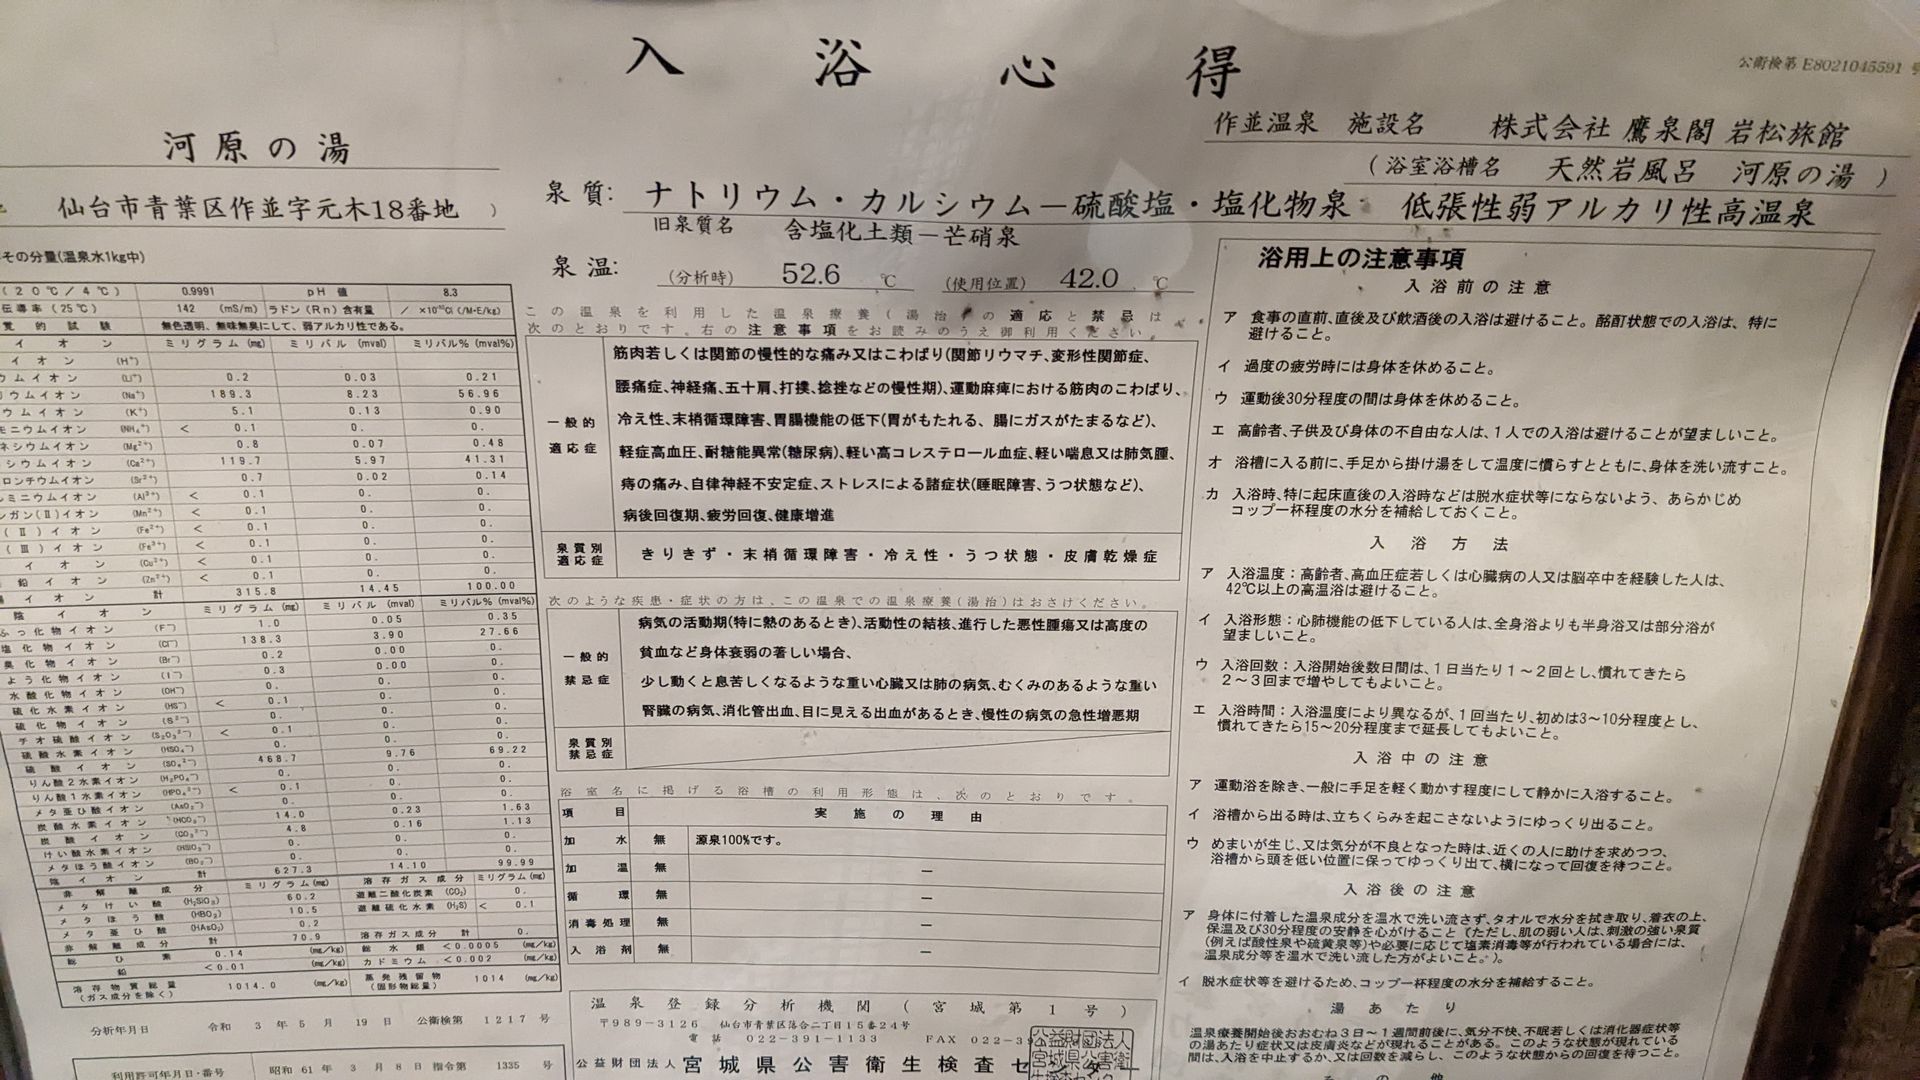 入浴心得
公衛検第 E8021045591
河原の湯
作並温泉 施設名 株式会社 鷹泉閣 岩松旅館
(浴室浴槽名 天然岩風呂 河原の湯 )
仙台市青葉区作並字元木18番地 )
泉質: ナトリウム・カルシウム－硫酸塩・塩化物泉 低張性弱アルカリ性高温泉
旧泉質名 含塩化土類－芒硝泉
泉温: (分析時) 52.6 ℃ (使用位置) 42.0 ℃
その分量(温泉水1kg中)
(20℃/4℃) 0.9991 pH 値 8.3
伝導率(25℃) 142 (mS/m) ラドン(Rn)含有量 / ×10⁻¹⁰Ci (/M・E/kg)
覚的試験 無色透明、無味無臭にして、弱アルカリ性である。
イオン ミリグラム(mg) ミリバル(mval) ミリバル%(mval%)
イオン (H⁺)
ウムイオン (Li⁺) 0.2 0.03 0.21
リウムイオン (Na⁺) 189.3 8.23 56.96
ウムイオン (K⁺) 5.1 0.13 0.90
モニウムイオン (NH₄⁺) < 0.1 0. 0.
ネシウムイオン (Mg²⁺) 0.8 0.07 0.48
シウムイオン (Ca²⁺) 119.7 5.97 41.31
ロンチウムイオン (Sr²⁺) 0.7 0.02 0.14
ルミニウムイオン (Al³⁺) < 0.1 0. 0.
ンガン(Ⅱ)イオン (Mn²⁺) < 0.1 0. 0.
(Ⅱ)イオン (Fe²⁺) < 0.1 0. 0.
(Ⅲ)イオン (Fe³⁺) < 0.1 0. 0.
イオン (Cu²⁺) < 0.1 0. 0.
鉛イオン (Zn²⁺) < 0.1 0. 0.
イオン 計 315.8 14.45 100.00
陰イオン ミリグラム(mg) ミリバル(mval) ミリバル%(mval%)
ふっ化物イオン (F⁻) 1.0 0.05 0.35
塩化物イオン (Cl⁻) 138.3 3.90 27.66
臭化物イオン (Br⁻) 0.2 0.00 0.
よう化物イオン (I⁻) 0.3 0.00 0.
水酸化物イオン (OH⁻) 0. 0. 0.
硫化水素イオン (HS⁻) < 0.1 0. 0.
硫化物イオン (S²⁻) 0. 0. 0.
チオ硫酸イオン (S₂O₃²⁻) < 0.1 0. 0.
硫酸水素イオン (HSO₄⁻) 0. 0. 0.
硫酸イオン (SO₄²⁻) 468.7 9.76 69.22
りん酸2水素イオン (H₂PO₄⁻) 0. 0. 0.
りん酸1水素イオン (HPO₄²⁻) < 0.1 0. 0.
メタ亜ひ酸イオン (AsO₂⁻) 0. 0. 0.
炭酸水素イオン (HCO₃⁻) 14.0 0.23 1.63
炭酸イオン (CO₃²⁻) 4.8 0.16 1.13
けい酸水素イオン (HSiO₃⁻) 0. 0. 0.
メタほう酸イオン (BO₂⁻) 0. 0. 0.
陰イオン 計 627.3 14.10 99.99
非解離成分 ミリグラム(mg) 溶存ガス成分 ミリグラム(mg)
メタけい酸 (H₂SiO₃) 60.2 遊離二酸化炭素 (CO₂) 0.
メタほう酸 (HBO₂) 10.5 遊離硫化水素 (H₂S) < 0.1
メタ亜ひ酸 (HAsO₂) 0.2
非解離成分 計 70.9 溶存ガス成分 計 0.
総ひ素 0.14 (mg/kg) 総水銀 <0.0005 (mg/kg)
鉛 <0.01 (mg/kg) カドミウム <0.002 (mg/kg)
溶存物質総量 (ガス成分を除く) 1014.0 (mg/kg) 蒸発残留物 (固形物総量) 1014 (mg/kg)
分析年月日 令和 3年 5月 19日 公衛検第 1217 号
利用許可年月日・番号 昭和 61年 3月 8日 指令第 1335 号
この温泉を利用した温泉療養(湯治)の適応と禁忌は
次のとおりです。右の注意事項をお読みのうえ御利用ください。
一般的適応症
筋肉若しくは関節の慢性的な痛み又はこわばり(関節リウマチ、変形性関節症、
腰痛症、神経痛、五十肩、打撲、捻挫などの慢性期)、運動麻痺における筋肉のこわばり、
冷え性、末梢循環障害、胃腸機能の低下(胃がもたれる、腸にガスがたまるなど)、
軽症高血圧、耐糖能異常(糖尿病)、軽い高コレステロール血症、軽い喘息又は肺気腫、
痔の痛み、自律神経不安定症、ストレスによる諸症状(睡眠障害、うつ状態など)、
病後回復期、疲労回復、健康増進
泉質別適応症 きりきず・末梢循環障害・冷え性・うつ状態・皮膚乾燥症
次のような疾患・症状の方は、この温泉での温泉療養(湯治)はおさけください。
一般的禁忌症
病気の活動期(特に熱のあるとき)、活動性の結核、進行した悪性腫瘍又は高度の
貧血など身体衰弱の著しい場合、
少し動くと息苦しくなるような重い心臓又は肺の病気、むくみのあるような重い
腎臓の病気、消化管出血、目に見える出血があるとき、慢性の病気の急性増悪期
泉質別禁忌症
浴室名に掲げる浴槽の利用形態は、次のとおりです。
項目 実施の理由
加水 無 源泉100%です。
加温 無 －
循環 無 －
消毒処理 無 －
入浴剤 無 －
温泉登録分析機関(宮城第1号)
〒989-3126 仙台市青葉区落合二丁目15番24号
電話 022-391-1133 FAX 022-39
公益財団法人 宮城県公害衛生検査センター
公益財団法人
宮城県公害衛
生検査センタ
浴用上の注意事項
入浴前の注意
ア 食事の直前、直後及び飲酒後の入浴は避けること。酩酊状態での入浴は、特に
避けること。
イ 過度の疲労時には身体を休めること。
ウ 運動後30分程度の間は身体を休めること。
エ 高齢者、子供及び身体の不自由な人は、1人での入浴は避けることが望ましいこと。
オ 浴槽に入る前に、手足から掛け湯をして温度に慣らすとともに、身体を洗い流すこと。
カ 入浴時、特に起床直後の入浴時などは脱水症状等にならないよう、あらかじめ
コップ一杯程度の水分を補給しておくこと。
入浴方法
ア 入浴温度:高齢者、高血圧症若しくは心臓病の人又は脳卒中を経験した人は、
42℃以上の高温浴は避けること。
イ 入浴形態:心肺機能の低下している人は、全身浴よりも半身浴又は部分浴が
望ましいこと。
ウ 入浴回数:入浴開始後数日間は、1日当たり1～2回とし、慣れてきたら
2～3回まで増やしてもよいこと。
エ 入浴時間:入浴温度により異なるが、1回当たり、初めは3～10分程度とし、
慣れてきたら15～20分程度まで延長してもよいこと。
入浴中の注意
ア 運動浴を除き、一般に手足を軽く動かす程度にして静かに入浴すること。
イ 浴槽から出る時は、立ちくらみを起こさないようにゆっくり出ること。
ウ めまいが生じ、又は気分が不良となった時は、近くの人に助けを求めつつ、
浴槽から頭を低い位置に保ってゆっくり出て、横になって回復を待つこと。
入浴後の注意
ア 身体に付着した温泉成分を温水で洗い流さず、タオルで水分を拭き取り、着衣の上、
保温及び30分程度の安静を心がけること(ただし、肌の弱い人は、刺激の強い泉質
(例えば酸性泉や硫黄泉等)や必要に応じて塩素消毒等が行われている場合には、
温泉成分等を温水で洗い流した方がよいこと。)。
イ 脱水症状等を避けるため、コップ一杯程度の水分を補給すること。
湯あたり
温泉療養開始後おおむね3日～1週間前後に、気分不快、不眠若しくは消化器症状等
の湯あたり症状又は皮膚炎などが現れることがある。このような状態が現れている
間は、入浴を中止するか、又は回数を減らし、このような状態からの回復を待つこと。
その他